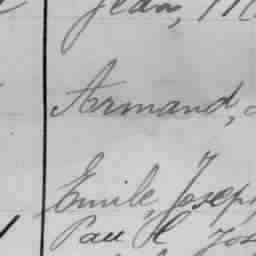 Jean,
Armand,
Emile, Joseph
Paul